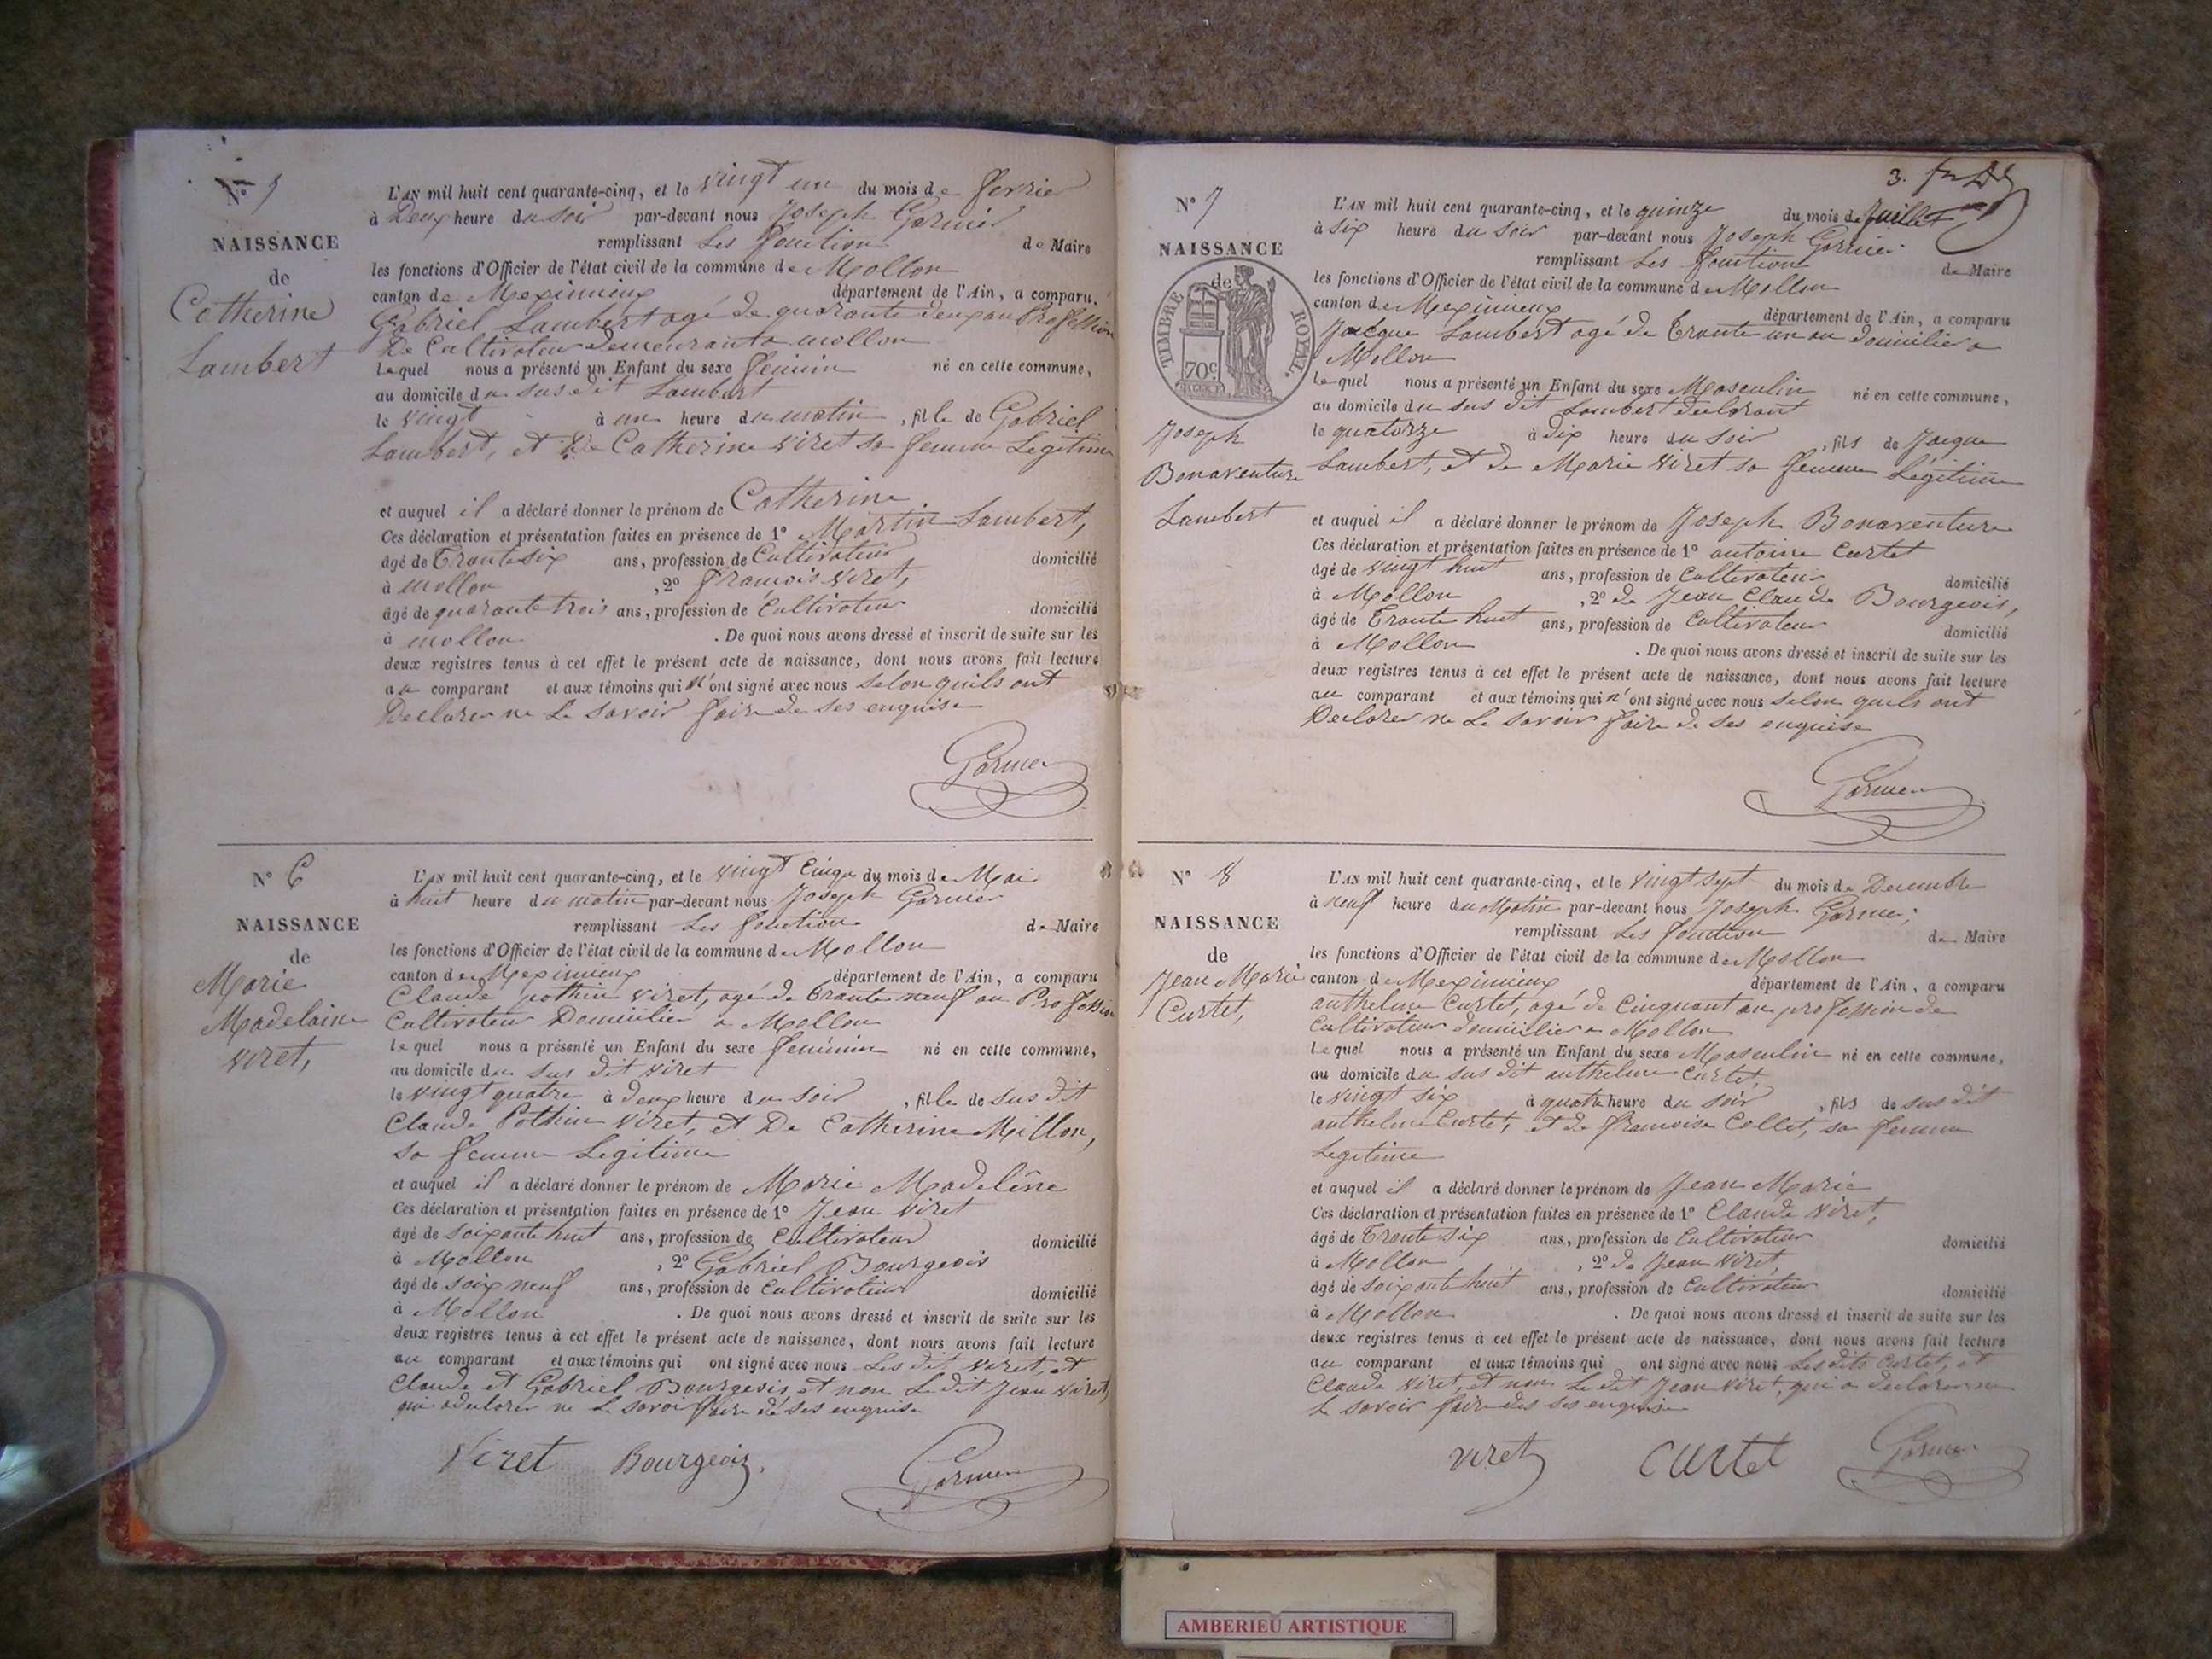 N° 5
NAISSANCE
de
Catherine
Lambert
L'AN mil huit cent quarante-cinq, et le vingt un du mois de fevrier
à Deux heure du soir par-devant nous Joseph Garnier
remplissant les fonction de Maire
les fonctions d'Officier de l'état civil de la commune de Mollon
canton de Meximieux département de l'Ain, a comparu
Gabriel Lambert agé de quarante deux an Profession
De Cultivateur demeurant a mollon
lequel nous a présenté un Enfant du sexe feminin né en cette commune,
au domicile du sus dit Lambert
le vingt à un heure du matin, fille de Gabriel
Lambert, et De Catherine Viret sa femme Legitime
et auquel il a déclaré donner le prénom de Catherine
Ces déclaration et présentation faites en présence de 1° Martin Lambert,
âgé de Trante six ans, profession de Cultivateur domicilié
à mollon, 2° françois Viret,
âgé de quarante trois ans, profession de Cultivateur domicilié
à mollon. De quoi nous avons dressé et inscrit de suite sur les
deux registres tenus à cet effet le présent acte de naissance, dont nous avons fait lecture
au comparant et aux témoins qui n'ont signé avec nous selon quils ont
Declarer ne Le savoir faire de ses enquise
Garnier
N° 6
NAISSANCE
de
Marie
Madelaine
Viret,
L'AN mil huit cent quarante-cinq, et le vingt Cinq du mois de Mai
à huit heure du matin par-devant nous Joseph Garnier
remplissant Les fonction de Maire
les fonctions d'Officier de l'état civil de la commune de Mollon
canton de Meximieux département de l'Ain, a comparu
Claude pothin Viret, agé de trante neuf an Profession
Cultivateur Domicilier a Mollon
lequel nous a présenté un Enfant du sexe feminin né en cette commune,
au domicile du sus dit Viret
le vingt quatre à deux heure du soir, fille de sus dit
Claude Pothin Viret, et De Catherine Millon,
sa femme Legitime
et auquel il a déclaré donner le prénom de Marie Madelêne
Ces déclaration et présentation faites en présence de 1° Jean Viret
âgé de soixante huit ans, profession de Cultivateur domicilié
à Mollon, 2° Gabriel Bourgeois
âgé de soix neuf ans, profession de Cultivateur domicilié
à Mollon. De quoi nous avons dressé et inscrit de suite sur les
deux registres tenus à cet effet le présent acte de naissance, dont nous avons fait lecture
au comparant et aux témoins qui ont signé avec nous Les dit Viret, et
Claude et Gabriel Bourgeois, et non Le dit Jean Viret,
qui a declarer ne Le savoir faire de ses enquise
Viret Bourgeois. Garnier
3.
N° 7
NAISSANCE
de
TIMBRE ROYAL.
70c
Joseph
Bonaventure
Lambert
L'AN mil huit cent quarante-cinq, et le quinze du mois de Juillet
à six heure du soir par-devant nous Joseph Garnier
remplissant Les fonction de Maire
les fonctions d'Officier de l'état civil de la commune de Mollon
canton de Meximieux département de l'Ain, a comparu
Jacque Lambert agé de trante un an domicilier a
Mollon
lequel nous a présenté un Enfant du sexe Masculin né en cette commune,
au domicile du sus dit Lambert declarant
le quatorze à dix heure du soir, fils de Jacque
Lambert, et de Marie Viret sa femme Légitime
et auquel il a déclaré donner le prénom de Joseph Bonaventure
Ces déclaration et présentation faites en présence de 1° antoine Curtet
âgé de vingt huit ans, profession de Cultivateur domicilié
à Mollon, 2° de Jean Claude Bourgeois,
âgé de Trante huit ans, profession de Cultivateur domicilié
à Mollon. De quoi nous avons dressé et inscrit de suite sur les
deux registres tenus à cet effet le présent acte de naissance, dont nous avons fait lecture
au comparant et aux témoins qui n'ont signé avec nous selon quils ont
Declarer ne Le savoir faire de ses enquise
Garnier
N° 8
NAISSANCE
de
Jean Marie
Curtet,
L'AN mil huit cent quarante-cinq, et le vingt sept du mois de Decembre
à neuf heure du Matin par-devant nous Joseph Garnier
remplissant Les fonction de Maire
les fonctions d'Officier de l'état civil de la commune de Mollon
canton de Meximieux département de l'Ain, a comparu
anthelme Curtet, agé de Cinquant an profession de
Cultivateur domicilier a Mollon
lequel nous a présenté un Enfant du sexe Masculin né en cette commune,
au domicile du sus dit anthelme Curtet,
le vingt six à quatre heure du soir, fils de sus dit
anthelme Curtet, et de francoise Collet, sa femme
Legitime
et auquel il a déclaré donner le prénom de Jean Marie
Ces déclaration et présentation faites en présence de 1° Claude Viret,
âgé de Trante six ans, profession de Cultivateur domicilié
à Mollon, 2° de Jean Viret,
âgé de soixante huit ans, profession de Cultivateur domicilié
à Mollon. De quoi nous avons dressé et inscrit de suite sur les
deux registres tenus à cet effet le présent acte de naissance, dont nous avons fait lecture
au comparant et aux témoins qui ont signé avec nous Les dits Curtet, et
Claude Viret, et non Le dit Jean Viret, qui a declarer ne
Le savoir faire des ses enquise
Viret Curtet Garnier
AMBERIEU ARTISTIQUE